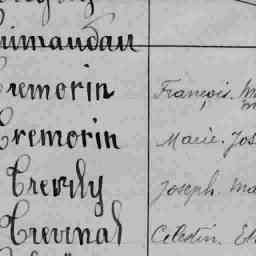 Tremorin François. M
Tremorin Marie. Jos
Trevily Joseph. Ma
Trevinal Celestin. El